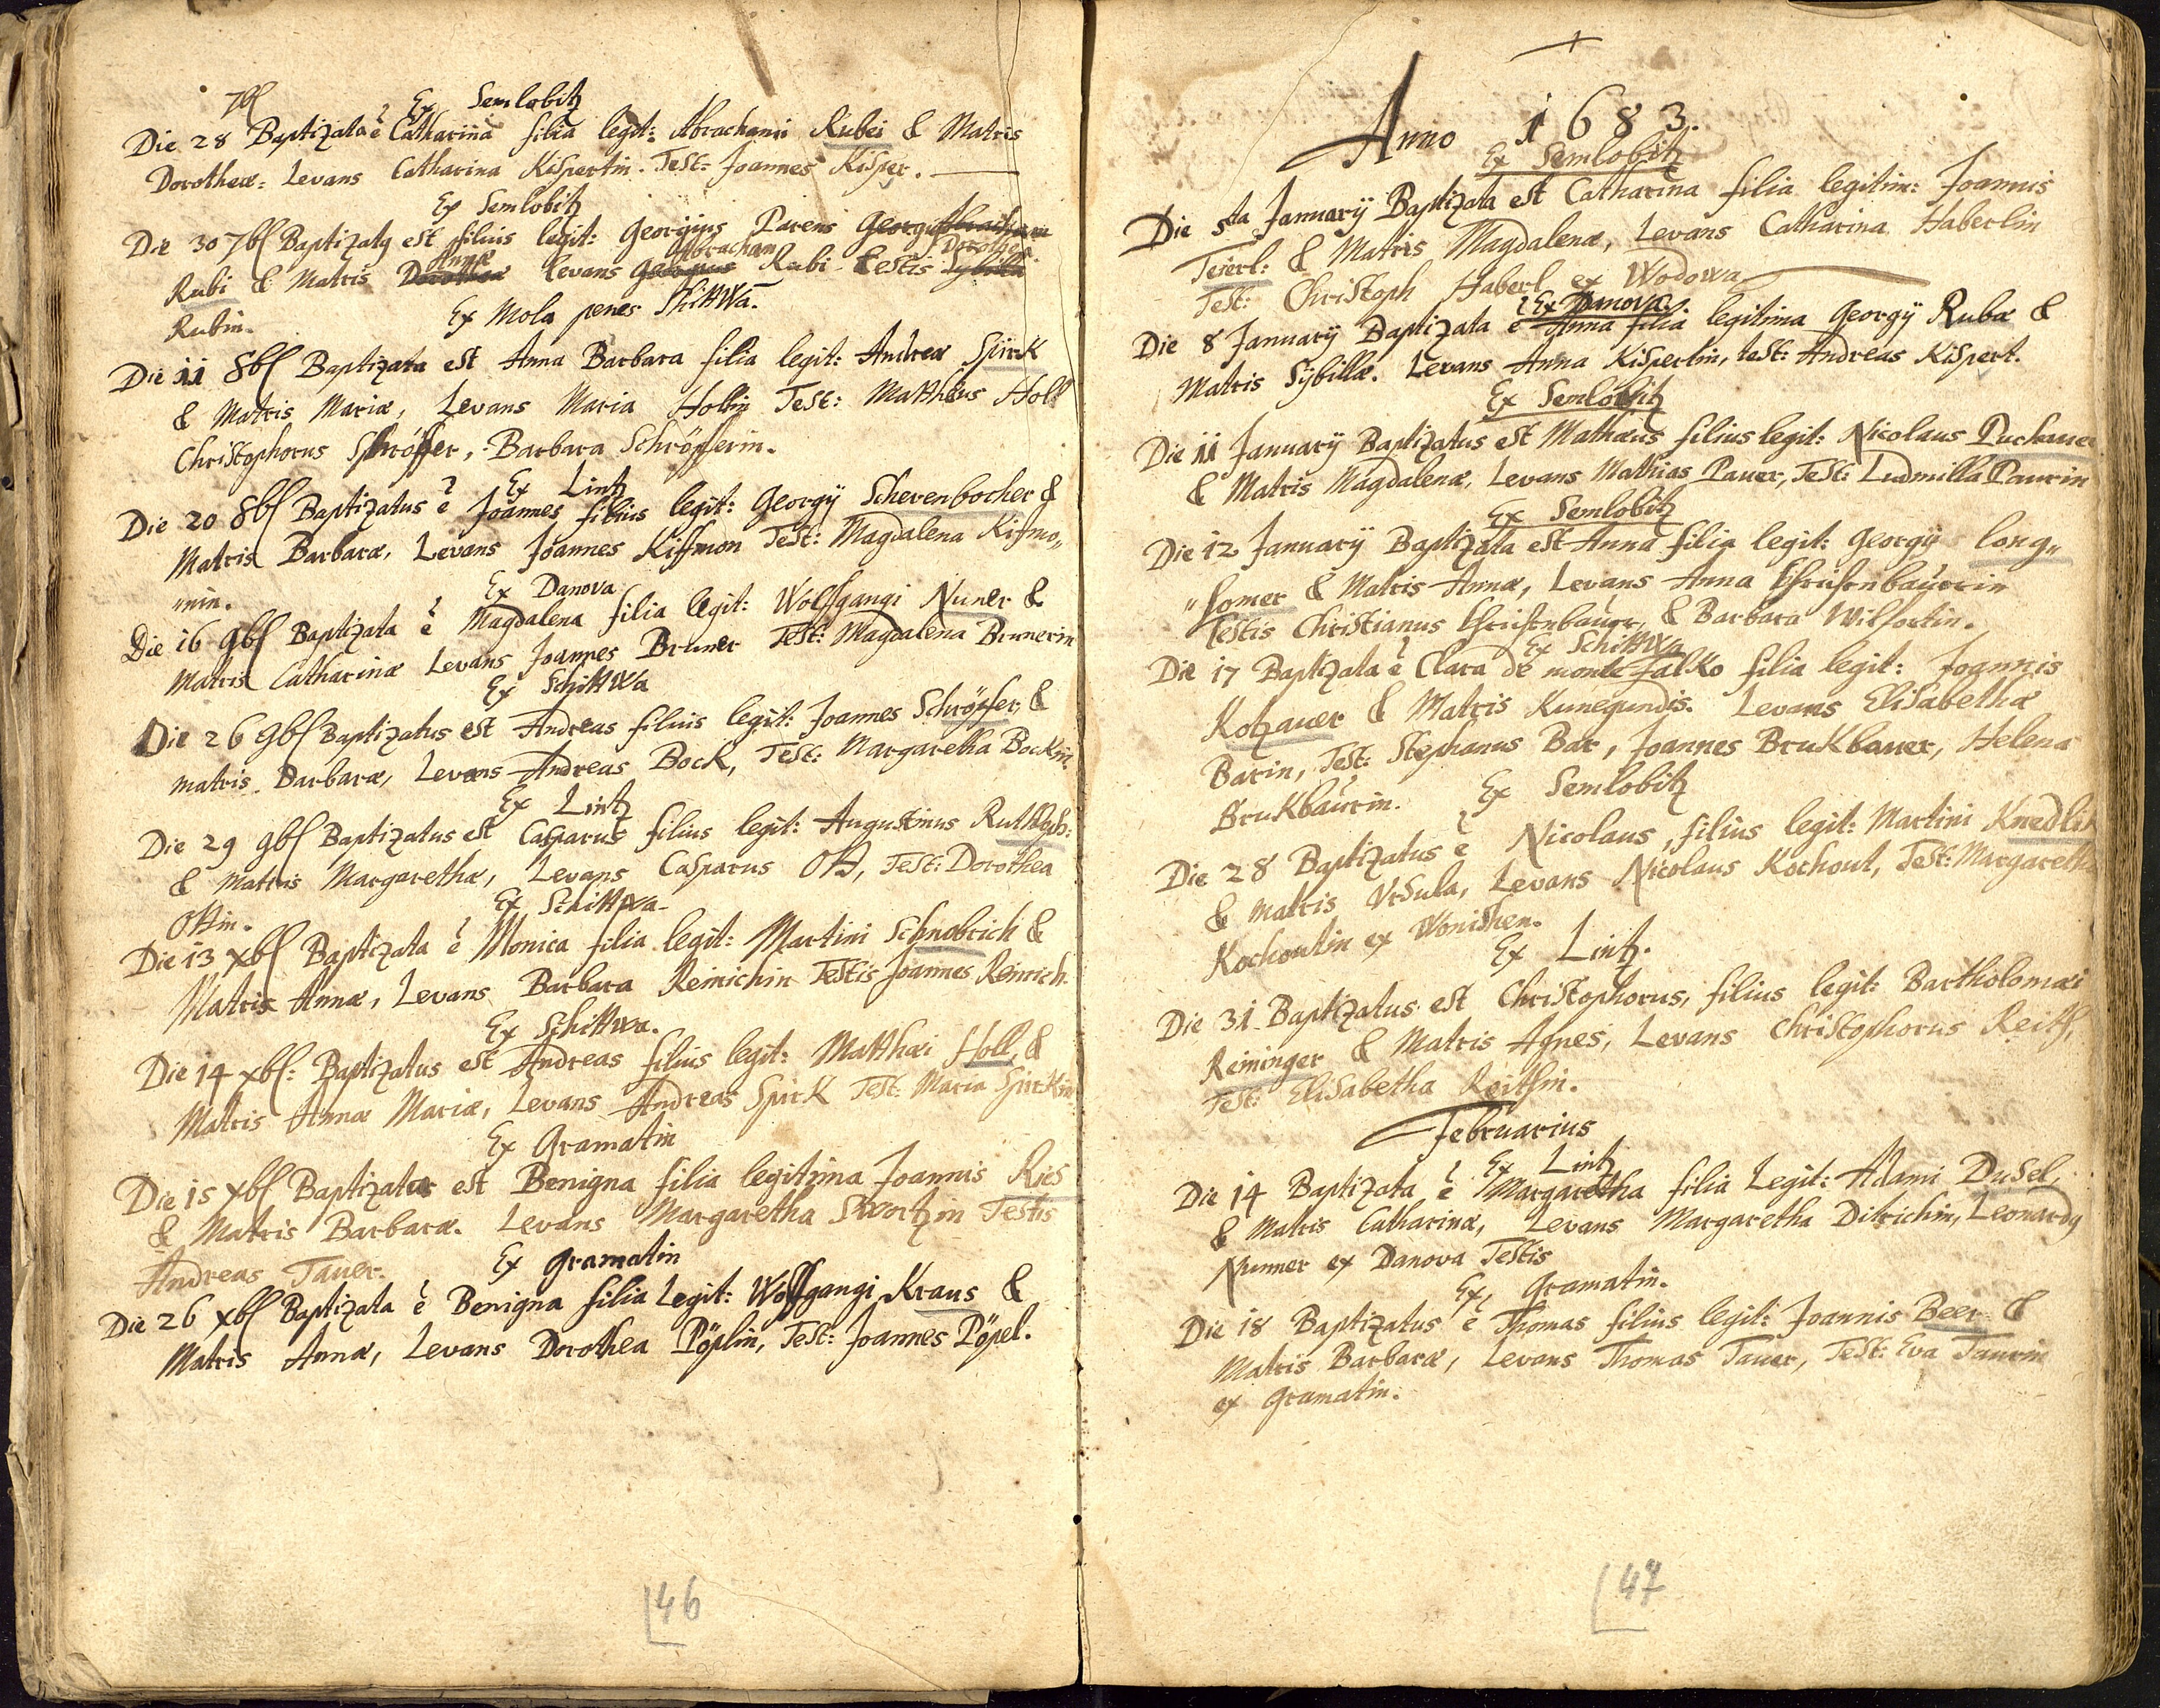 7b[
Ex Semlobitz
Die 28 Baptizata ẽ Catharina filia legit: Abrachami Rubei & Matris
Dorotheæ: Levans Catharina Kispertin. Test: Joannes Kisper.
Ex Semlobitz
Die 30 7b[ Baptizatg est filius legit: Georgius Parens Georgi Abracham
Annæ Abracham Dorothea
Rubi & Matris Dorothea levans Georgius Rubi testis Sybilla
Rubin.
Ex Mola penes ShittWa.
Die 11 8b[ Baptizata est Anna Barbara filia legit: Andreæ Spirk
& Matris Mariæ, Levans Maria Hollin Test: Matthëus Holl
Christophorus Schröpfer, Barbara Schröpferin.
Ex Lintz
Die 20 8b[ Baptizatus ẽ Joannes filius legit: Georgÿ Scherenbocher &
Matris Barbaræ, Levans Joannes Kissmon Test: Magdalena Kismo„
„nin.
Ex Danova
Die 16 9b[ Baptizata ẽ Magdalena filia legit: Wolfgangi Nuner &
Matris Catharinæ Levans Joannes Bruner Test: Magdalena Brunerin
Ex SchittWa
Die 26 9b[ Baptizatus est Andreas filius legit: Joannes Schröpfer &
matris Barbaræ, Levans Andreas Bock, Test: Margaretha Bockin.
Ex Lintz
Die 29 9b[ Baptizatus est Casparus filius legit: Augustinus
& matris Margarethæ, Levans Casparus Ott, Test: Dorothea
Ottin.
Ex Schittwa
Die 13 xb[ Baptizata ẽ Monica filia legit: Martini Schnobrich &
Matris Annæ, Levans Barbara Reinichin Testis Joannes Reinich.
Ex Schittwa.
Die 14 xb[: Baptizatus est Andreas filius legit: Matthæi Holl, &
Matris Annæ Mariæ, Levans Andreas Spirk Test: Maria Spirkin
Ex Gramatin
Die 15 xb[ Baptizata est Benigna filia legitima Joannis Ries
& Matris Barbaræ. Levans Margaretha Swortzin Testis
Andreas Tauer.
Ex Gramatin
Die 26 xb[ Baptizata ẽ Benigna filia Legit: Wolfgangi Kraus &
Matris Annæ, Levans Dorothea Pöplin, Test: Joannes Pöpel.
46
Anno 1683.
Ex Semlobitz
Die 5ta Januarÿ Baptizata est Catharina filia legitim: Joannis
Teierl: & Matris Magdalenæ, Levans Catharina Haberlin
Test: Christoph Haberl ex Wodowa
Ex Danova.
Die 8 Januarÿ Baptizata ẽ Anna filia legitima Georgÿ Rubæ &
Matris Sÿbillæ. Levans Anna Kispertin, test: Andreas Kispert.
Ex Semlobitz
Die 11 Januarÿ Baptizatus est Mathæus filius legit: Nicolaus Puckauer
& Matris Magdalenæ, Levans Mathias Pauer, Test: Ludmilla Paurin
Ex Semlobitz
Die 12 Januarÿ Baptizata est Anna filia legit: Georgÿ long„
„somer & Matris Annæ, Levans Anna
Testis Christianus & Barbara Wilfortin.
Ex SchittWa
Die 17 Baptizata ẽ Clara de monte falko filia legit: Joannis
Kotzauer & Matris Kunegundis. Levans Elisabetha
Barin, Test: Stephanus Bar, Joannes Brukbauer, Helena
Brukbaurin.
Ex Semlobitz
Die 28 Baptizatus ẽ Nicolaus, filius legit: Martini Knedlik
& matris Vrsula, Levans Nicolaus Kochout, Test: Margaretha
Kochoutin ex Wonishen.
Ex Lintz.
Die 31 Baptizatus est Christophorus, filius legit: Bartholomæi
Reininger & Matris Agnes, Levans Christophorus Reith,
Test: Elisabetha Reithin.
Februarius
Ex Lintz
Die 14 Baptizata ẽ Margaretha filia Legit: Adami Dusel,
& Matris Catharinæ, Levans Margaretha Ditrichin, Leonardg
Nunner ex Danova Testis
Ex Gramatin.
Die 18 Baptizatus ẽ Thomas filius legit: Joannis Beer &
Matris Barbaræ, Levans Thomas Tauer, Test: Eva Taurin
ex Gramatin.
47